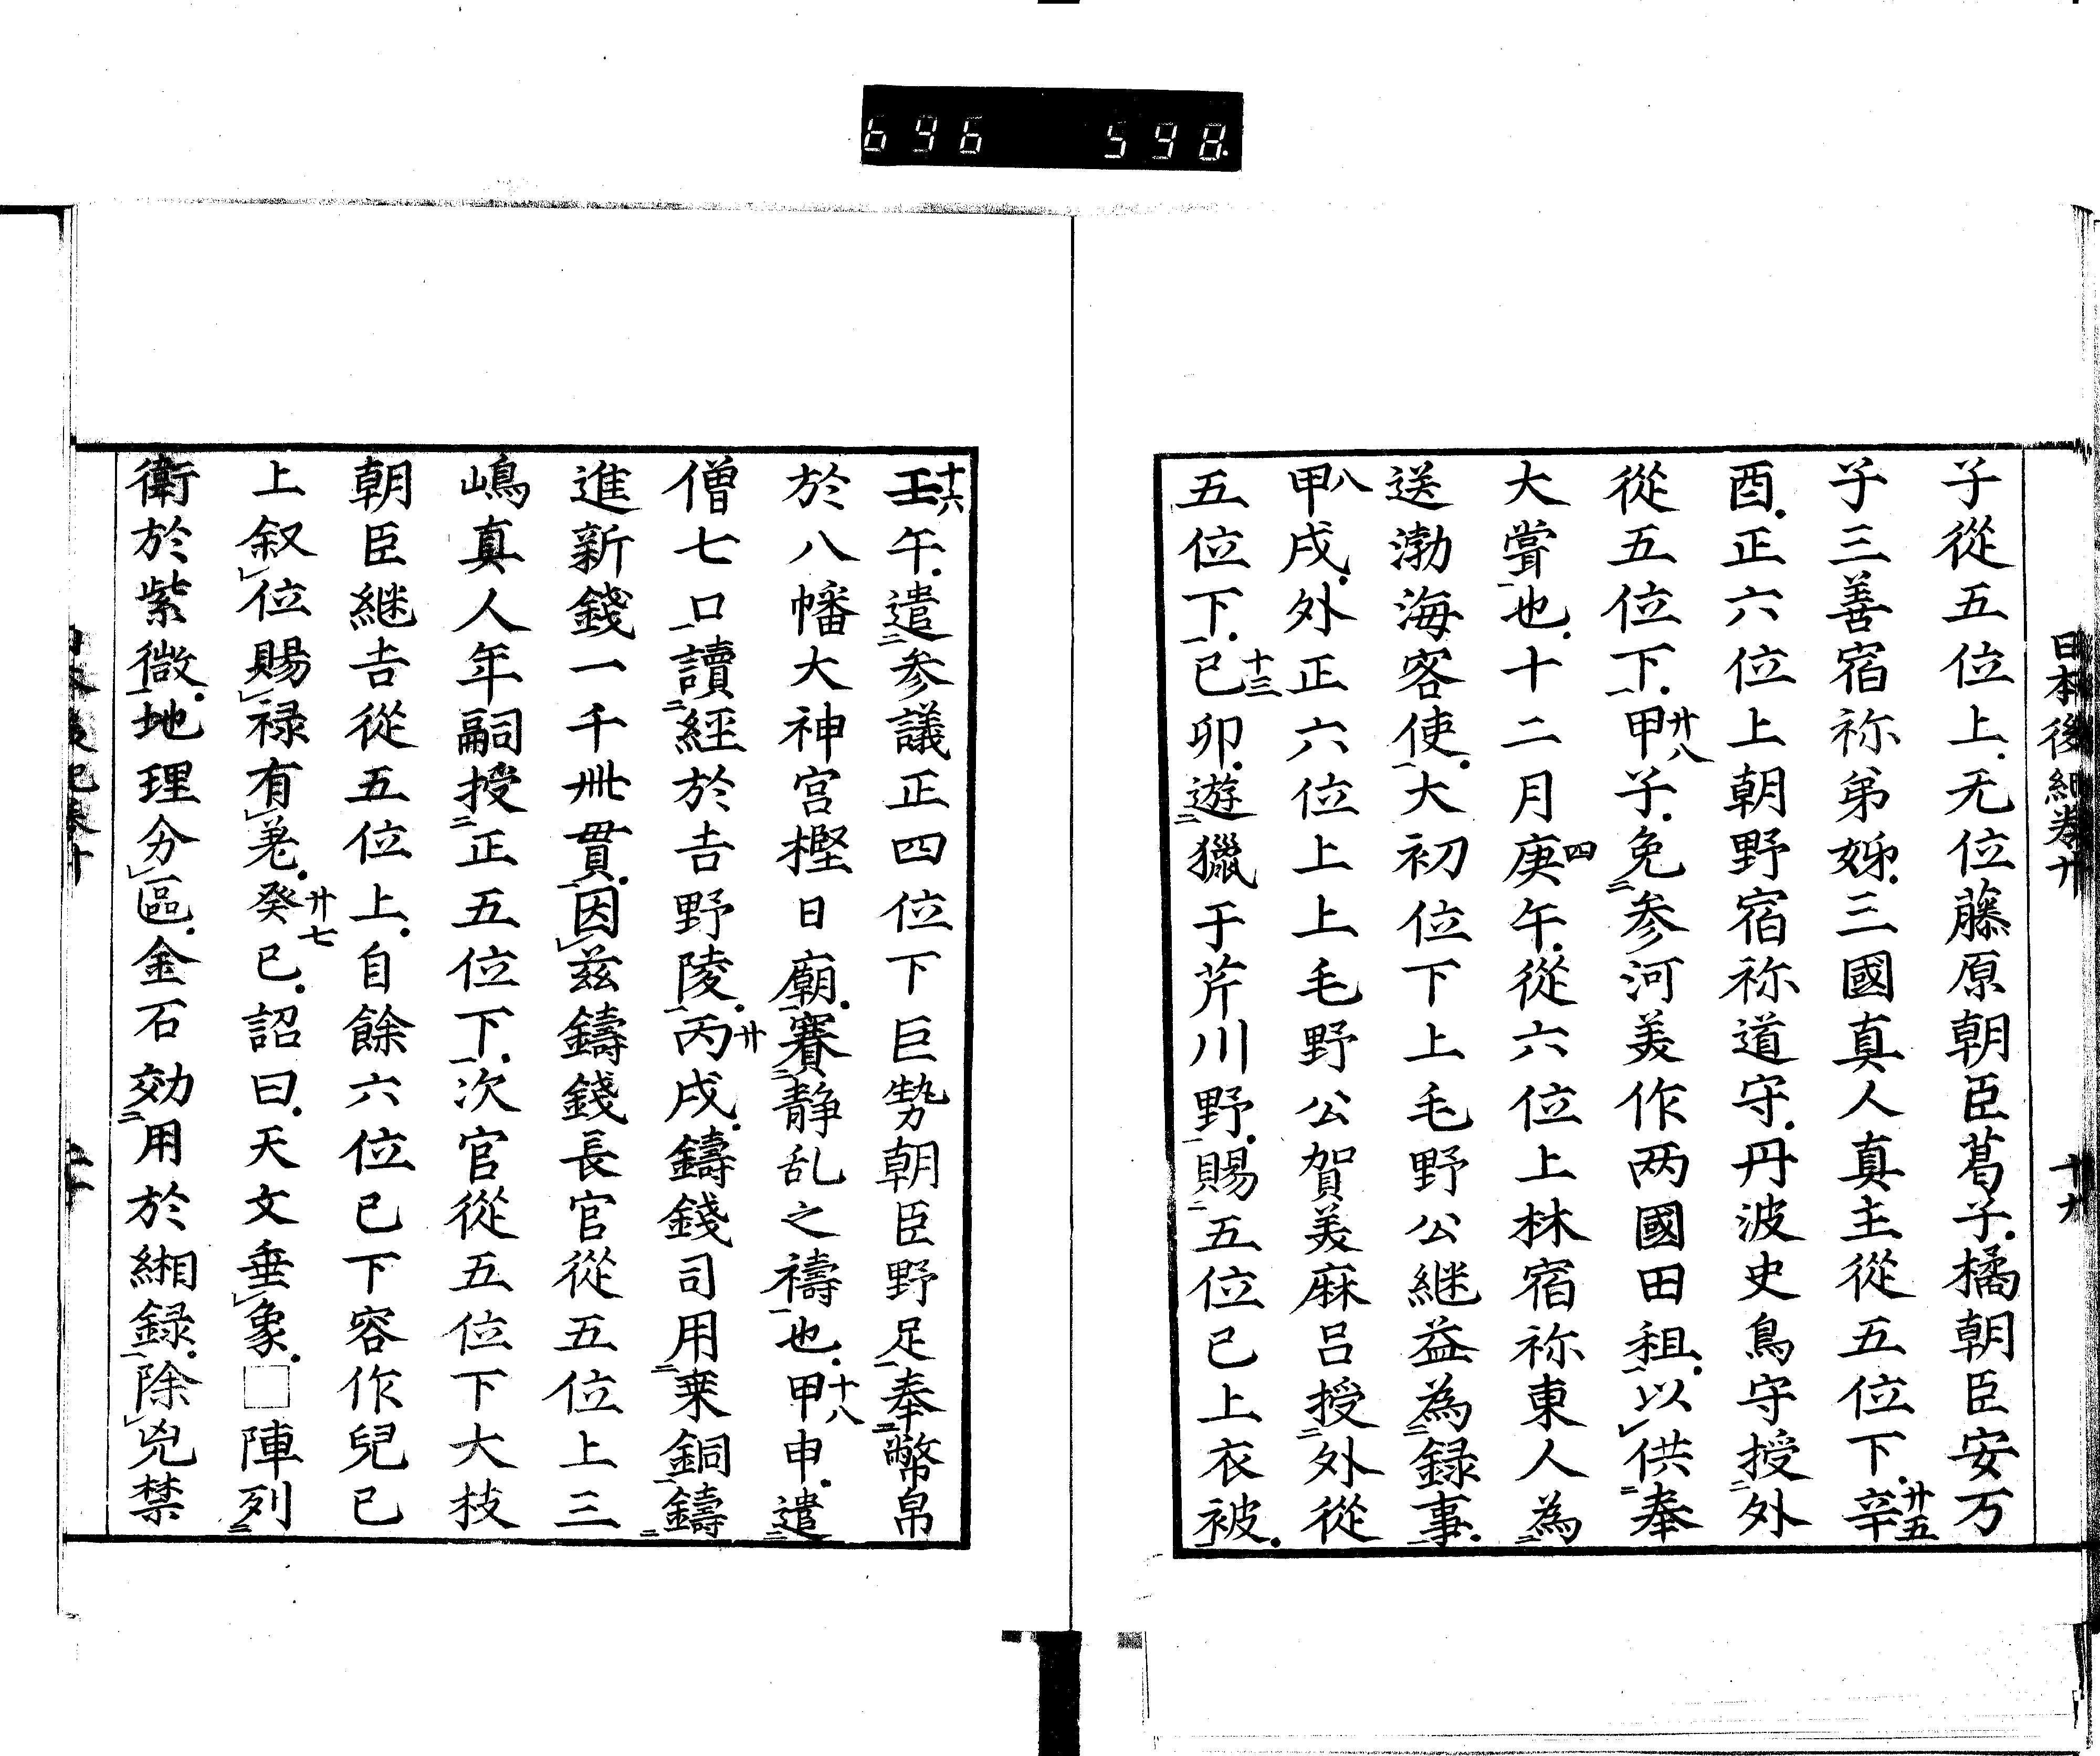 696 598
日本後紀卷廿 十九
子從五位上无位藤原朝臣葛子橘朝臣安万
子三善宿祢弟姊三國真人真主從五位下辛廿五
酉正六位上朝野宿祢道守丹波史鳥守授二外
從五位下一甲廿八子免二参河美作两國田租一以レ供二奉
大甞一也十二月庚四午從六位上林宿祢東人為二
送渤海客使一大初位下上毛野公継益為二録事一
甲八戌外正六位上上毛野公賀美麻呂授二外從
五位下一已十三卯遊二獵于芹川野一賜二五位已上衣被一
壬十六午遣二参議正四位下巨勢朝臣野足一奉二幣帛
於八幡大神宮樫日廟一賽二静乱之禱一也甲十八申遣二
僧七口一讀二經於吉野陵一丙廿戌鑄錢司用二乗銅一鑄二
進新錢一千卌貫一因レ茲鑄錢長官從五位上三
嶋真人年嗣授二正五位下一次官從五位下大枝
朝臣継吉從五位上自餘六位已下容作兒已
上叙レ位賜レ禄有レ差癸廿七已詔曰天文垂レ象□陣列二
衛於紫微一地理分レ區金石効二用於緗録一除レ兇禁